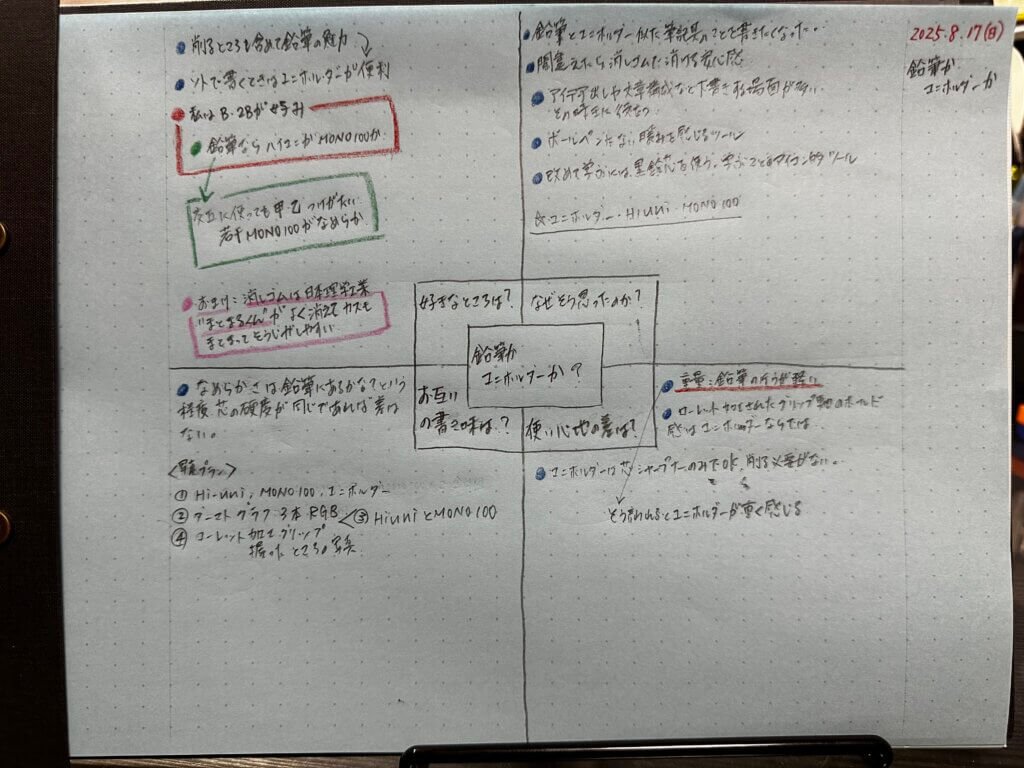 2025.8.17(日)
鉛筆か
ユニホルダーか
削るところも含めて鉛筆の魅力
ソトで書くときはユニホルダーが便利
私はB・2Bが好み
鉛筆ならハイユニかMONO100か
交互に使っても甲乙つけがたい
若干MONO100がなめらか
おまけ:消しゴムは日本理学工業
"まとまるくん"がよく消えてカスも
まとまってそうじがしやすい
鉛筆とユニホルダー似た筆記具のことを書きたくなった..
間違えたら消しゴムで消せる安心感
アイデア出しや文章構成など下書きする場面が多い
その時主に使う
ボールペンにない
を感じるツール
改めて学ぶには黒鉛芯を使う。学ぶことの
ツール
ユニホルダー・Hiuni・MONO100
好きなところは?
なぜそう思ったのか?
鉛筆か
ユニホルダーか?
お互い
の書き味は?
使い心地の差は?
なめらかさは鉛筆にあるかな?という
程度。芯の硬度が同じであれば差は
ない。
<写真プラン>
① Hi-uni, MONO100, ユニホルダー
②
3本 RGB
③ HiuniとMONO100
④ ローレット加工グリップ
握ったところの写真
重量:鉛筆のほうが軽い
ローレット加工されたグリップ軸のホールド
感はユニホルダーならでは
ユニホルダーは芯シャープナーのみでOK, 削る必要がない。
そう言われるとユニホルダーが重く感じる